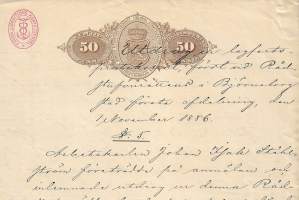 50 50
Utdrag ur lagfarts-
protokollet, fördt vid Råd-
stufvurätten i Björneborg
stad första afdelning, den
1 November 1886.
§. 5.
Arbetskarlen Johan Isak Ståhl
ström företrädde på anmälan och
inlemnade utdrag ur denna Råd-